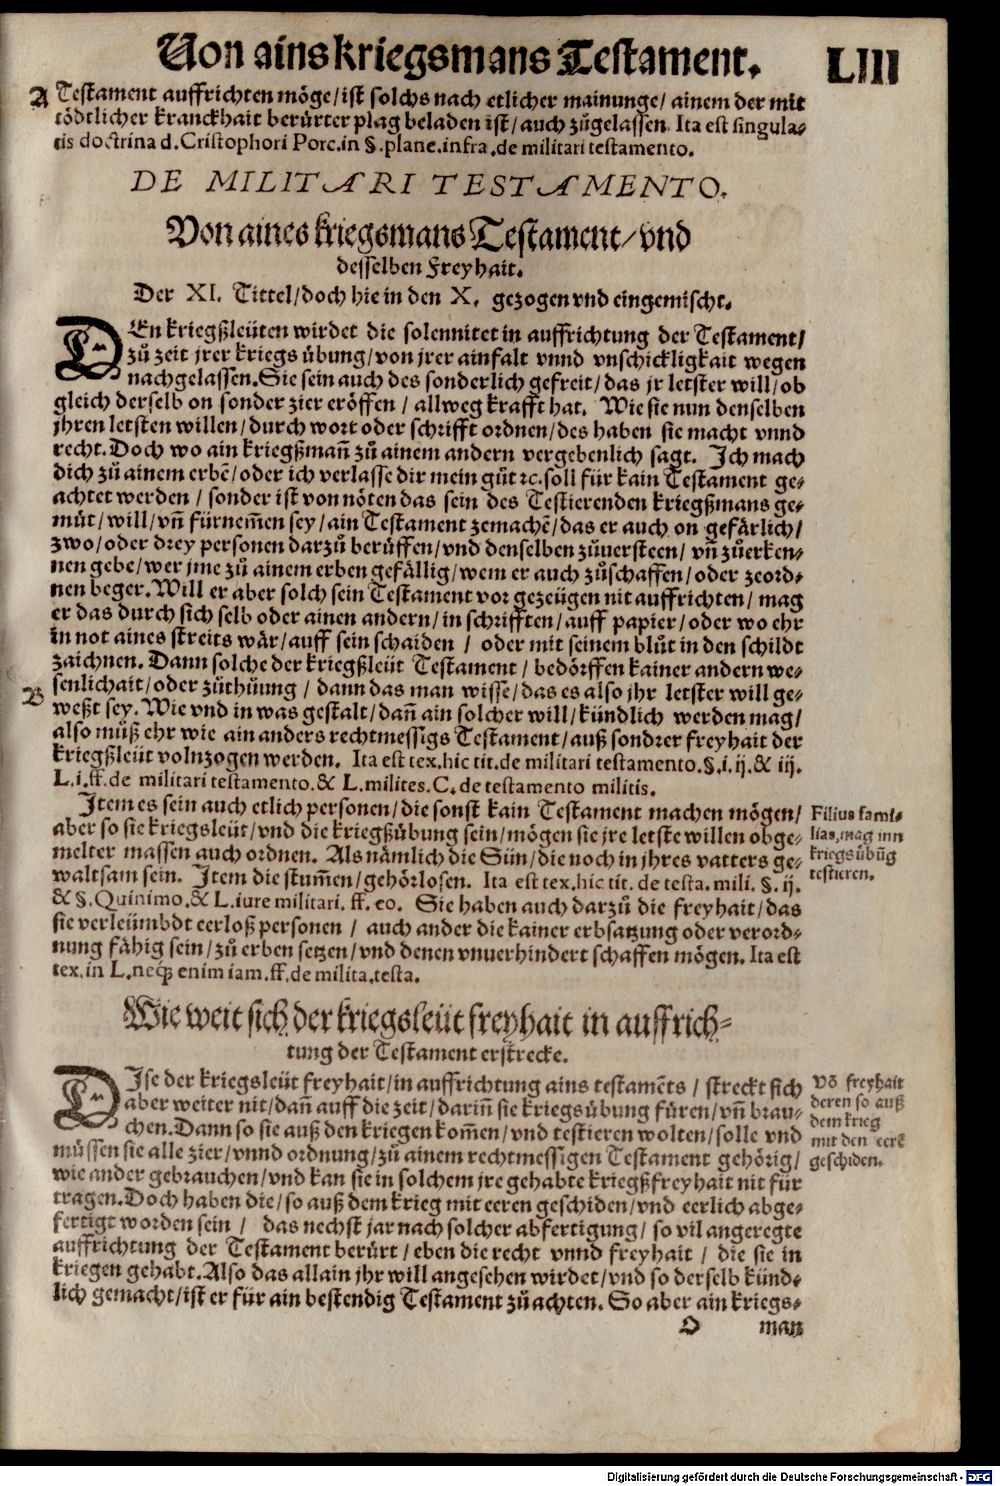 Von ains kriegsmans Testament. LIII
A Testament auffrichten möge/ist solchs nach etlicher mainunge/ainem der mit
tödtlicher kranckhait berürter plag beladen ist/auch zůgelassen. Ita est singula-
ris doctrina d. Cristophori Porc.in §.plane.infra.de militari testamento.
DE MILITARI TESTAMENTO.
Von aines kriegsmans Testament/vnd
desselben Freyhait.
Der XI. Tittel/doch hie in den X. gezogen vnd eingemischt.
DEn kriegßleüten wirdet die solennitet in auffrichtung der Testament/
zů zeit jrer kriegs übung/von jrer ainfalt vnnd vnschickligkait wegen
nachgelassen.Sie sein auch des sonderlich gefreit/das jr letster will/ob
gleich derselb on sonder zier eröffen/allweg krafft hat. Wie sie nun denselben
jhren letsten willen/durch wort oder schrifft ordnen/des haben sie macht vnnd
recht.Doch wo ain kriegßmañ zů ainem andern vergebenlich sagt. Ich mach
dich zů ainem erbē/oder ich verlasse dir mein gůt ꝛc.soll für kain Testament ge-
achtet werden/sonder ist von nöten das sein des Testierenden kriegßmans ge-
müt/will/vñ fürnem̃en sey/ain Testament zemachē/das er auch on gefärlich/
zwo/oder drey personen darzů berüffen/vnd denselben zůuersteen/vñ zůerken-
nen gebe/wer jme zů ainem erben gefällig/wem er auch zůschaffen/oder zeord-
nen beger.Will er aber solch sein Testament vor gezeügen nit auffrichten/mag
er das durch sich selb oder ainen andern/in schrifften/auff papier/oder wo ehr
in not aines streits wär/auff sein schaiden/oder mit seinem blůt in den schildt
zaichnen. Dann solche der kriegßleüt Testament/bedörffen kainer andern we-
B senlichait/oder zůthüung/dann das man wisse/das es also jhr letster will ge-
weßt sey.Wie vnd in was gestalt/dañ ain solcher will/kündlich werden mag/
also můß ehr wie ain anders rechtmessigs Testament/auß sondrer freyhait der
kriegßleüt volnzogen werden. Ita est tex.hic tit.de militari testamento.§.i.ij.& iij.
L.i.ff.de militari testamento.& L.milites.C.de testamento militis.
Item es sein auch etlich personen/die sonst kain Testament machen mögen/
aber so sie kriegsleüt/vnd die kriegßübung sein/mögen sie jre letste willen obge-
melter massen auch ordnen. Als nämlich die Sün/die noch in jhres vatters ge-
waltsam sein. Item die stum̃en/gehörlosen. Ita est tex.hic tit.de testa.mili.§.ij.
& §.Quinimo.& L.iure militari.ff.eo. Sie haben auch darzů die freyhait/das
sie verleümbdt eerloß personen/auch ander die kainer erbsatzung oder verord-
nung fähig sein/zů erben setzen/vnd denen vnuerhindert schaffen mögen. Ita est
tex.in L.neq; enim iam.ff.de milita.testa.
Filius fami-
lias,mag inn
kriegsübūg
testieren.
Wie weit sich der kriegsleüt freyhait in auffrich-
tung der Testament erstrecke.
DIse der kriegsleüt freyhait/in auffrichtung ains testamēts/streckt sich
aber weiter nit/dañ auff die zeit/dariñ sie kriegsübung füren/vñ brau-
chen.Dann so sie auß den kriegen kom̃en/vnd testieren wolten/solle vnd
müssen sie alle zier/vnnd ordnung/zů ainem rechtmessigen Testament gehörig/
wie ander gebrauchen/vnd kan sie in solchem jre gehabte kriegßfreyhait nit für
tragen.Doch haben die/so auß dem krieg mit eeren geschiden/vnd eerlich abge-
fertigt worden sein/das nechst jar nach solcher abfertigung/so vil angeregte
auffrichtung der Testament berürt/eben die recht vnnd freyhait/die sie in
kriegen gehabt.Also das allain jhr will angesehen wirdet/vnd so derselb künd-
lich gemacht/ist er für ain bestendig Testament zů achten. So aber ain kriegs-
Vō freyhait
deren so auß
dem krieg
mit den eerē
geschiden.
O man
Digitalisierung gefördert durch die Deutsche Forschungsgemeinschaft - DFG